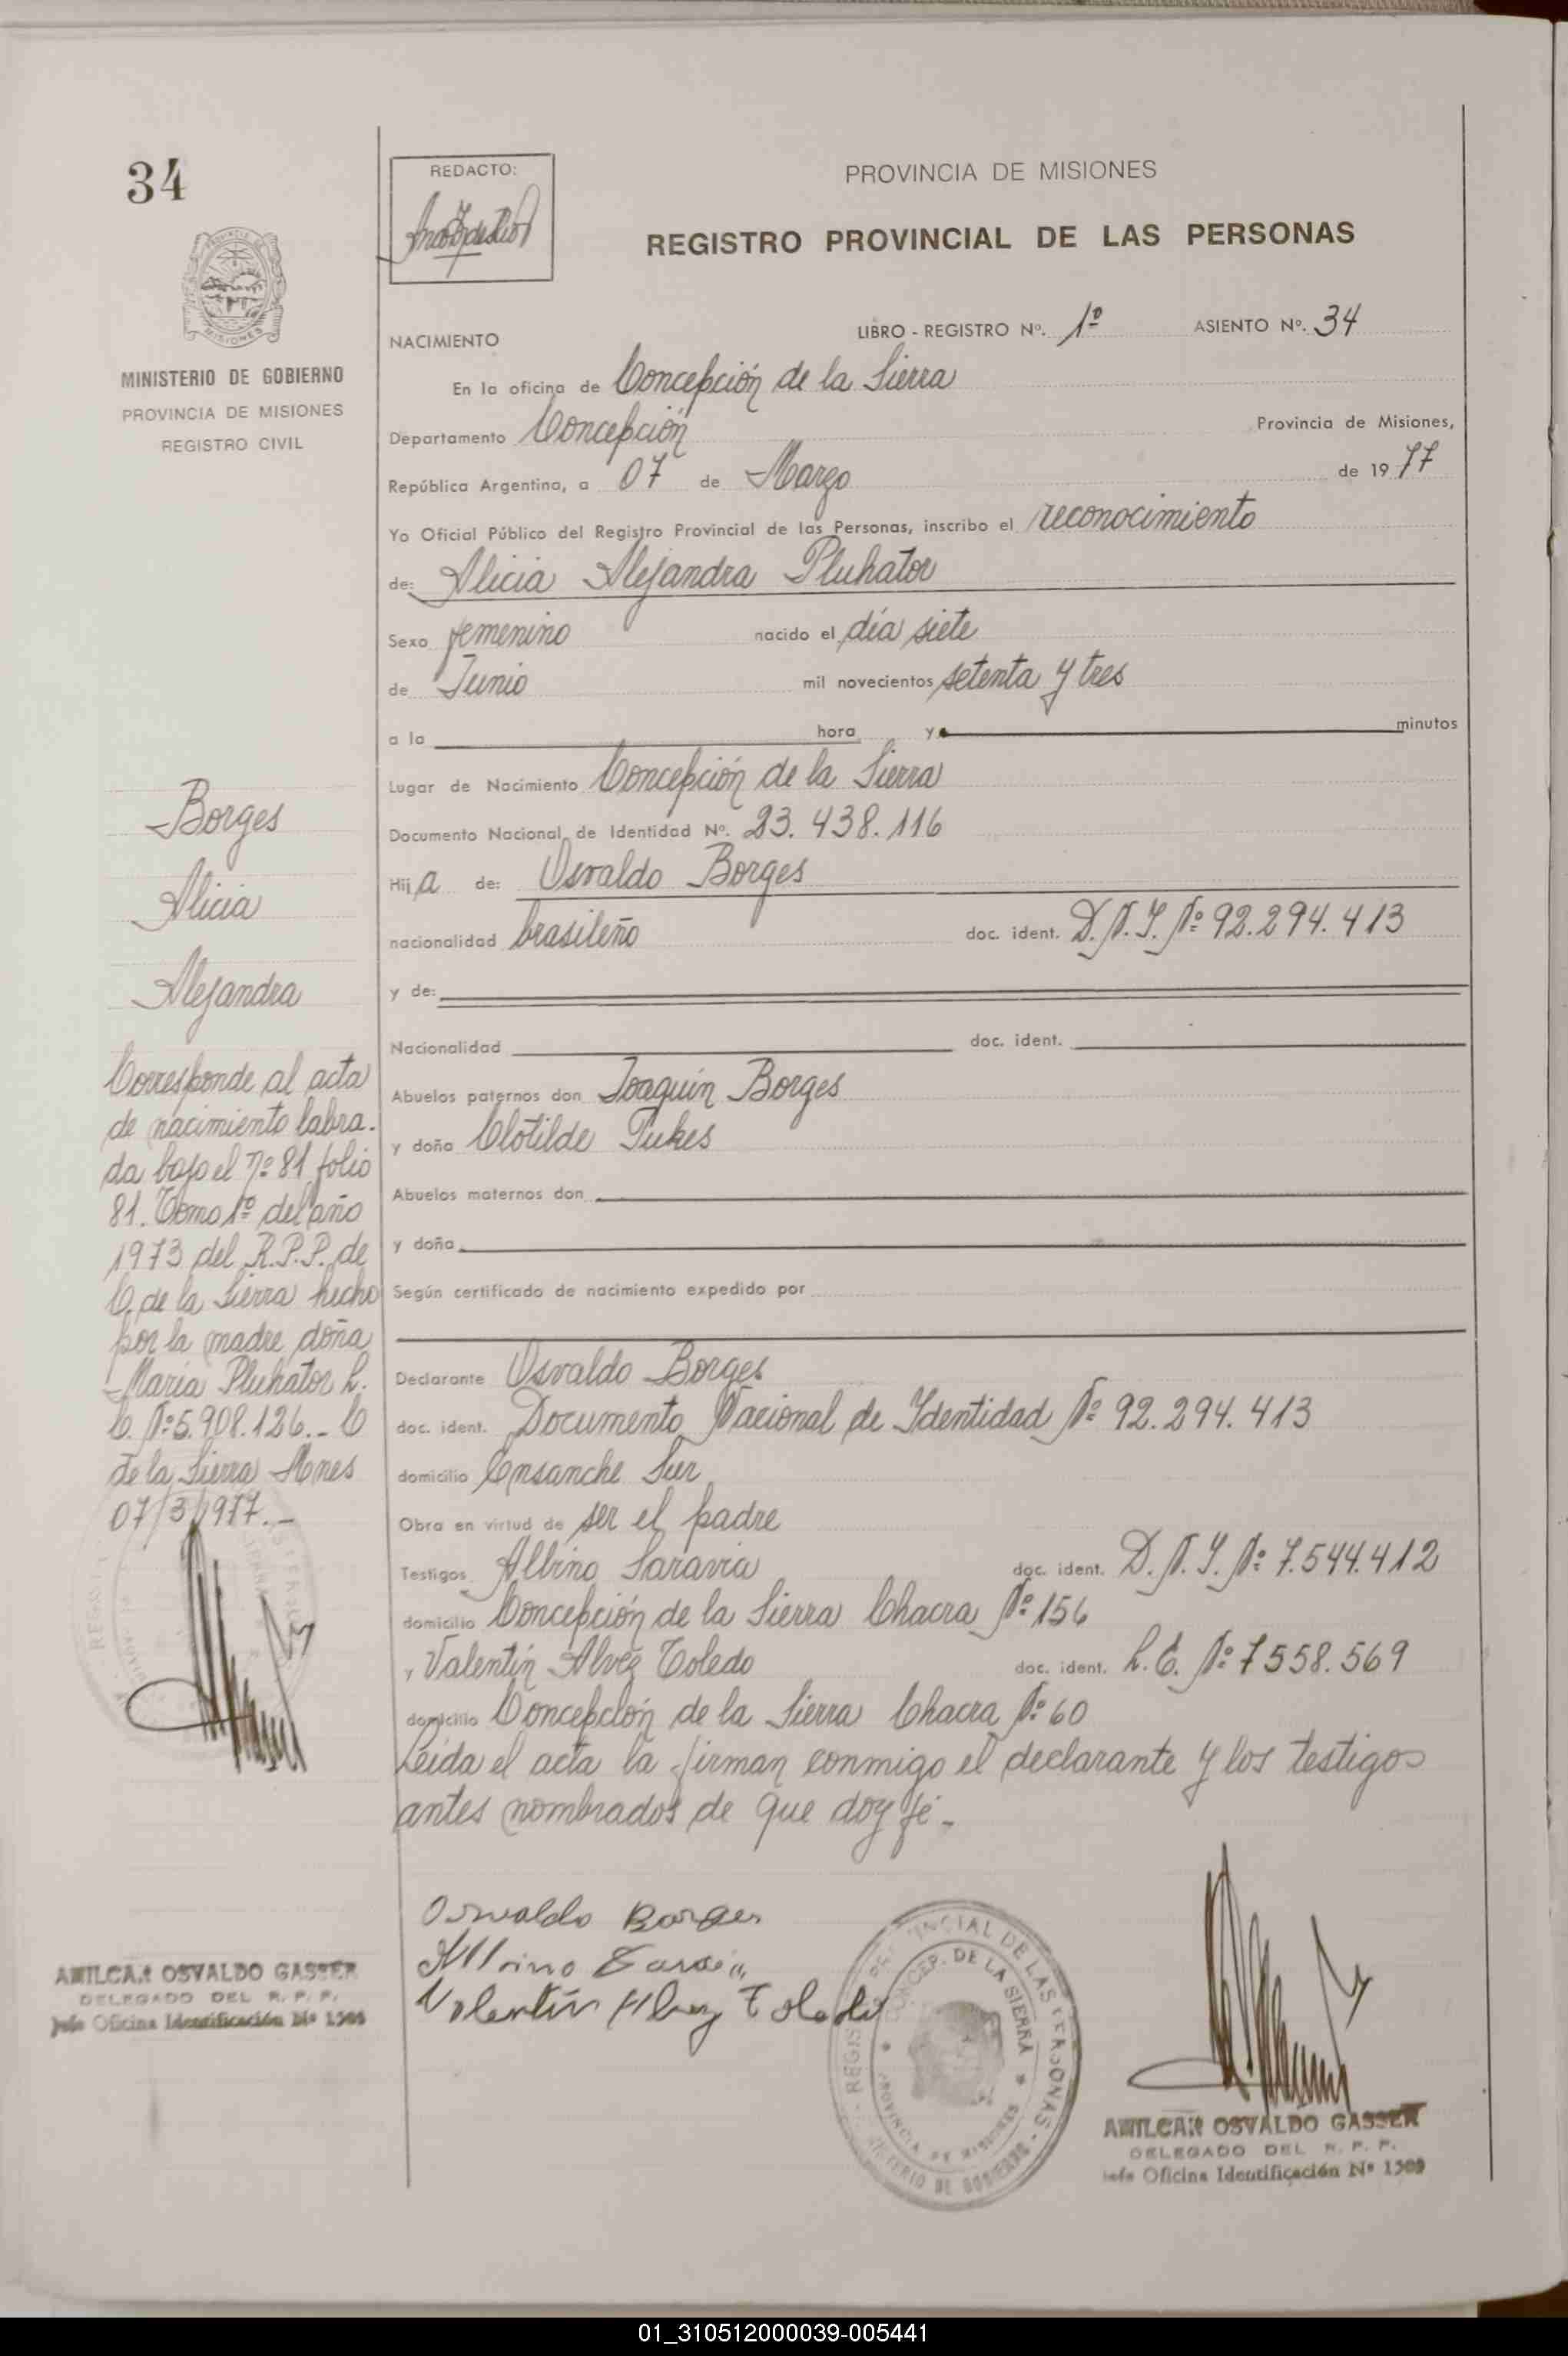 34
PROVINCIA DE MISIONES
MINISTERIO DE GOBIERNO
PROVINCIA DE MISIONES
REGISTRO CIVIL
REDACTO:
PROVINCIA DE MISIONES
REGISTRO PROVINCIAL DE LAS PERSONAS
NACIMIENTO
LIBRO - REGISTRO Nº. 1º ASIENTO Nº. 34
En la oficina de Concepción de la Sierra
Departamento Concepción Provincia de Misiones,
República Argentina, a 07 de Marzo de 19 77
Yo Oficial Público del Registro Provincial de las Personas, inscribo el reconocimiento
de: Alicia Alejandra Pluhator
Sexo femenino nacido el día siete
de Junio mil novecientos setenta y tres
a la hora y minutos
Lugar de Nacimiento Concepción de la Sierra
Documento Nacional de Identidad Nº. 23.438.116
Hij a de: Osvaldo Borges
nacionalidad brasileño doc. ident. D.N.I. Nº 92.294.413
y de:
Nacionalidad doc. ident.
Abuelos paternos don Joaquín Borges
y doña Clotilde Pukes
Abuelos maternos don
y doña
Según certificado de nacimiento expedido por
Declarante Osvaldo Borges
doc. ident. Documento Nacional de Identidad Nº 92.294.413
domicilio Ensanche Sur
Obra en virtud de ser el padre
Testigos Albino Saravia doc. ident. D.N.I. Nº 7.544.412
domicilio Concepción de la Sierra Chacra Nº 156
y Valentín Alvez Toledo doc. ident. L.E. Nº 7558.569
domicilio Concepción de la Sierra Chacra Nº 60
Leída el acta la firman conmigo el declarante y los testigos
antes nombrados de que doy fé.-
Borges
Alicia
Alejandra
Corresponde al acta
de nacimiento labra-
da bajo el nº 81 folio
81. Tomo 1º del año
1973 del R.P.P. de
C. de la Sierra hecho
por la madre doña
María Pluhator L.
C. Nº 5.908.126.- C
de la Sierra Mnes
07/3/1977.-
AMILCAR OSVALDO GASSER
DELEGADO DEL R. P. P.
Jefe Oficina Identificación Nº 1509
Osvaldo Borges
Albino Saravia
Valentín Alvez Toledo
REGISTRO PROVINCIAL DE LAS PERSONAS
CONCEP. DE LA SIERRA
PROVINCIA DE MISIONES
MINISTERIO DE GOBIERNO
AMILCAR OSVALDO GASSER
DELEGADO DEL R. P. P.
Jefe Oficina Identificación Nº 1509
01_310512000039-005441